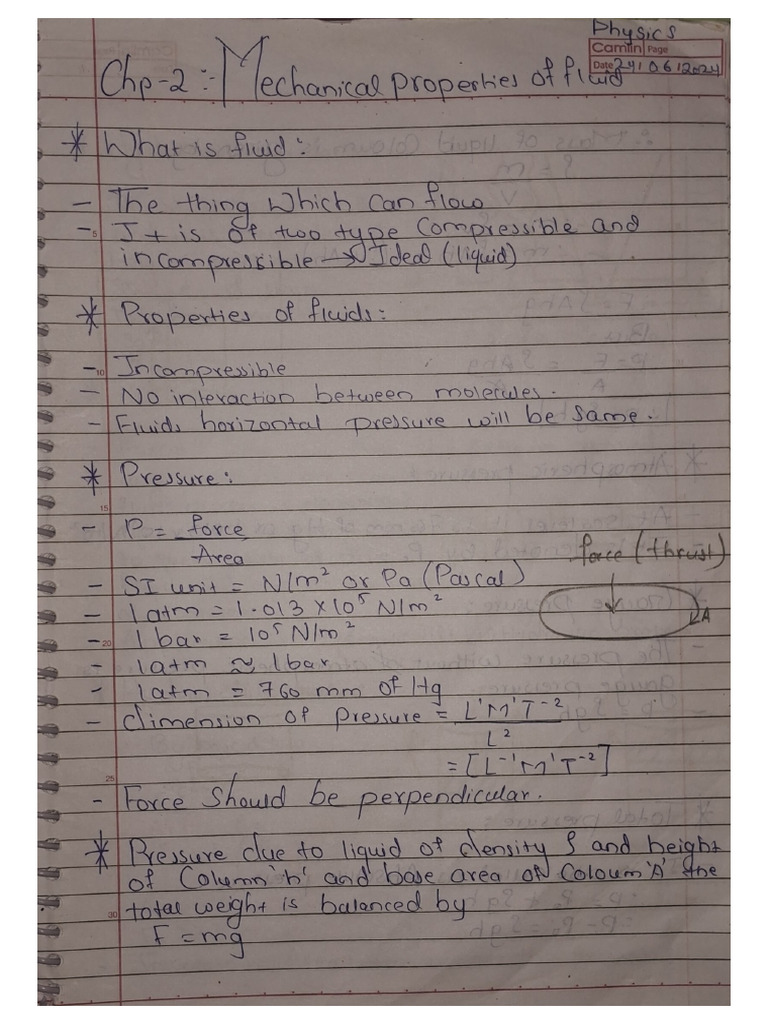 Physics
Camlin Page
Date 24/06/2024
Chp-2:- Mechanical properties of fluid
* What is fluid:
- The thing which can flow
- It is of two type compressible and
incompressible → Ideal (liquid)
* Properties of fluids:
- Incompressible
- No interaction between molecules.
- Fluids horizontal pressure will be same.
* Pressure:
- P = force
Area
force (thrust)
- SI unit = N/m² or Pa (Pascal)
- 1 atm = 1.013 × 10⁵ N/m²
A
- 1 bar = 10⁵ N/m²
- 1 atm ≈ 1 bar
- 1 atm = 760 mm of Hg
- dimension of pressure = L¹M¹T⁻²
L²
= [L⁻¹M¹T⁻²]
- Force should be perpendicular.
* Pressure due to liquid of density ρ and height
of column 'h' and base area of coloum 'A' the
total weight is balanced by
F = mg